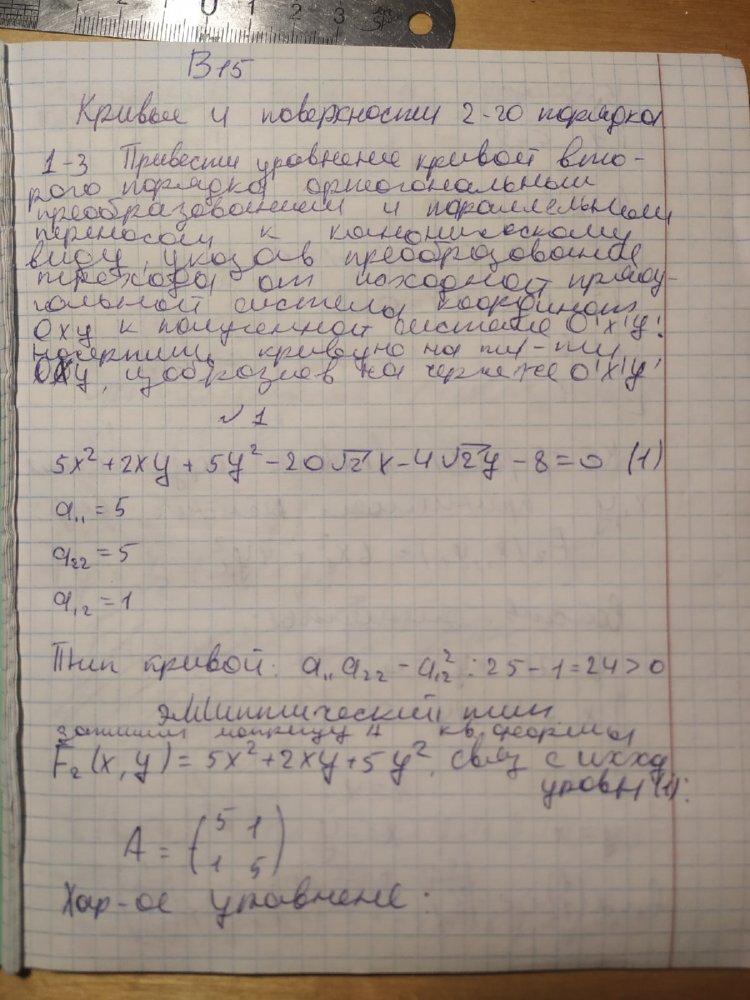 1 2 3
В 15
Кривые и поверхности 2-го порядка
1-3 Привести уравнение кривой вто-
рого порядка ортогональным
преобразованием и параллельным
переносом к каноническому
виду, указав преобразование
перехода от исходной прямоу-
гольной системы координат
Oxy к полученной системе O'x'y'.
Начертить кривую на пл-ти
OXy, изобразив на чертеже O'x'y'
√1
5x² + 2xy + 5y² - 20√2 x - 4√2 y - 8 = 0 (1)
a₁₁ = 5
a₂₂ = 5
a₁₂ = 1
Тип кривой: a₁₁a₂₂ - a₁₂² : 25 - 1 = 24 > 0
эллиптический тип
запишем матрицу A кв. формы
F₂(x, y) = 5x² + 2xy + 5y², связ с исход
уравн (1):
A = (5 1
1 5)
Хар-ое уравнение: